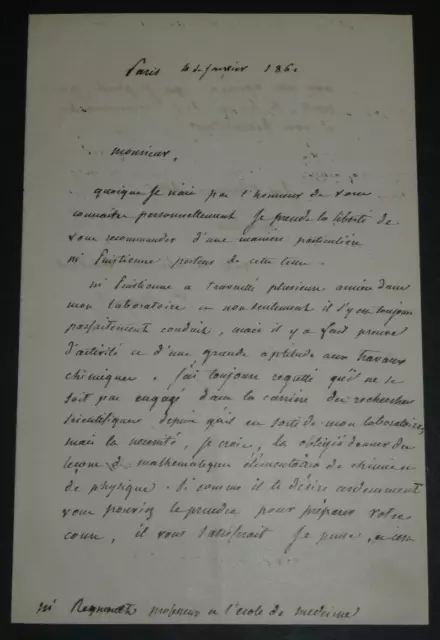 Paris le de janvier 186
monsieur,
quoique je n'aie pas l'honneur de vous
connaitre personnellement je prends la liberté de
vous recommander d'une manière particulière
porteur de cette lettre.
a travaillé plusieurs années dans
mon laboratoire et non seulement il s'y est toujours
parfaitement conduit, mais il y a fait preuve
d'activité et d'une grande aptitude aux travaux
chimiques. j'ai toujours regretté qu'il ne se
soit pas engagé dans la carrière des recherches
scientifiques depuis qu'il est sorti de mon laboratoire,
mais la necessité, je crois, l'a obligé à donner des
leçons de mathematiques élémentaires de chimie et
de physique. Si comme il le désire ardemment
vous pouviez le prendre pour préparer votre
cours, il vous satisferait je pense,
professeur a l'école de medecine